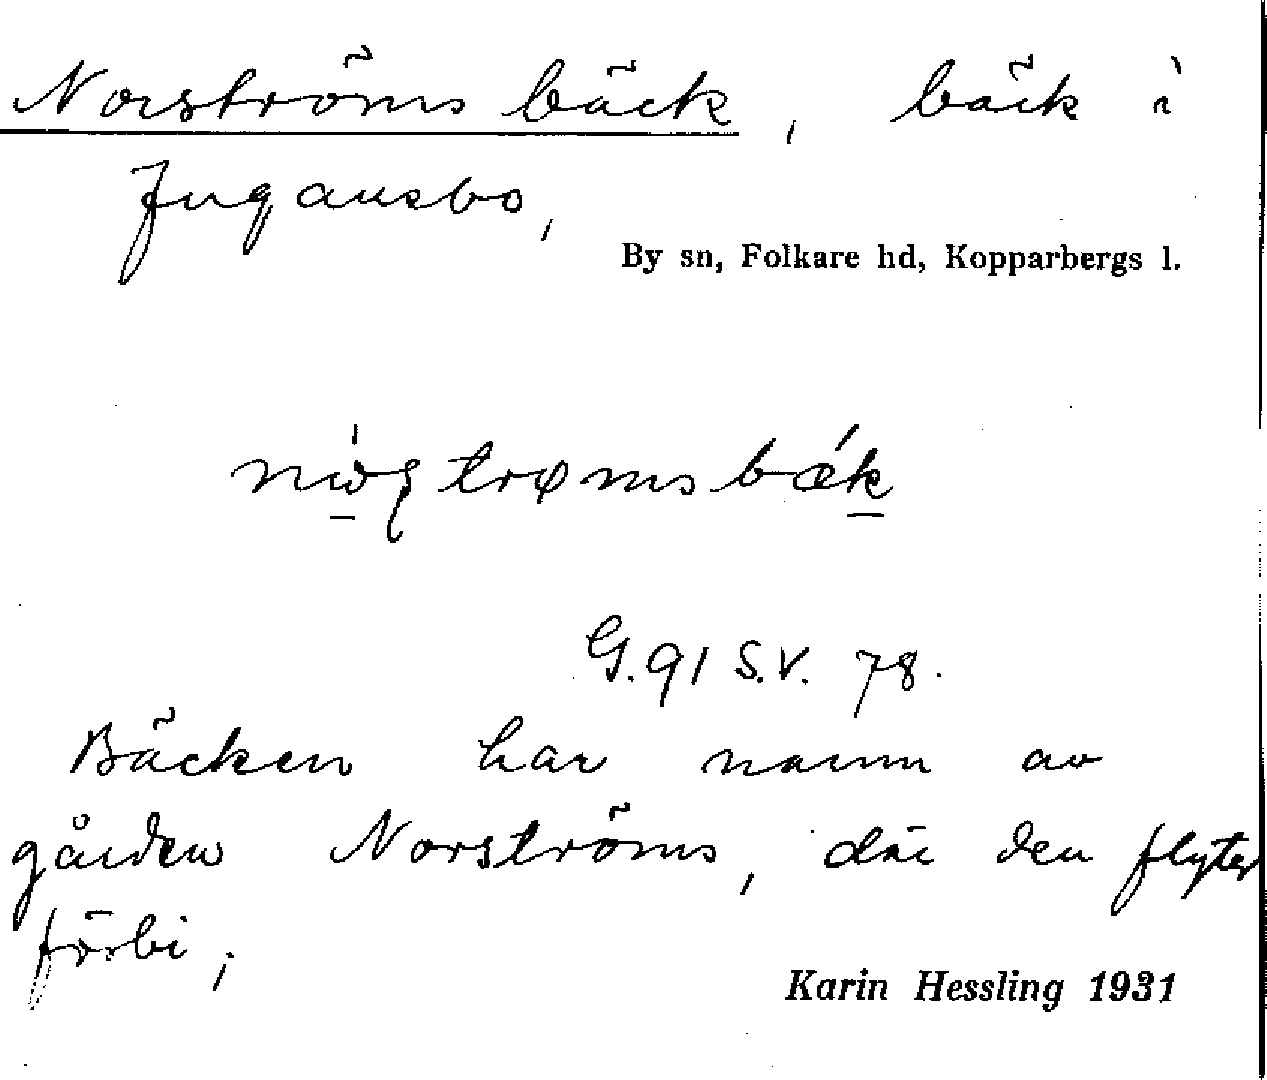 Norströms bäck, bäck i
Jugansbo,
By sn, Folkare hd, Kopparbergs l.
G. 91 S.V. 78.
Bäcken har namn av
gården Norströms, där den flyter
förbi,
Karin Hessling 1931